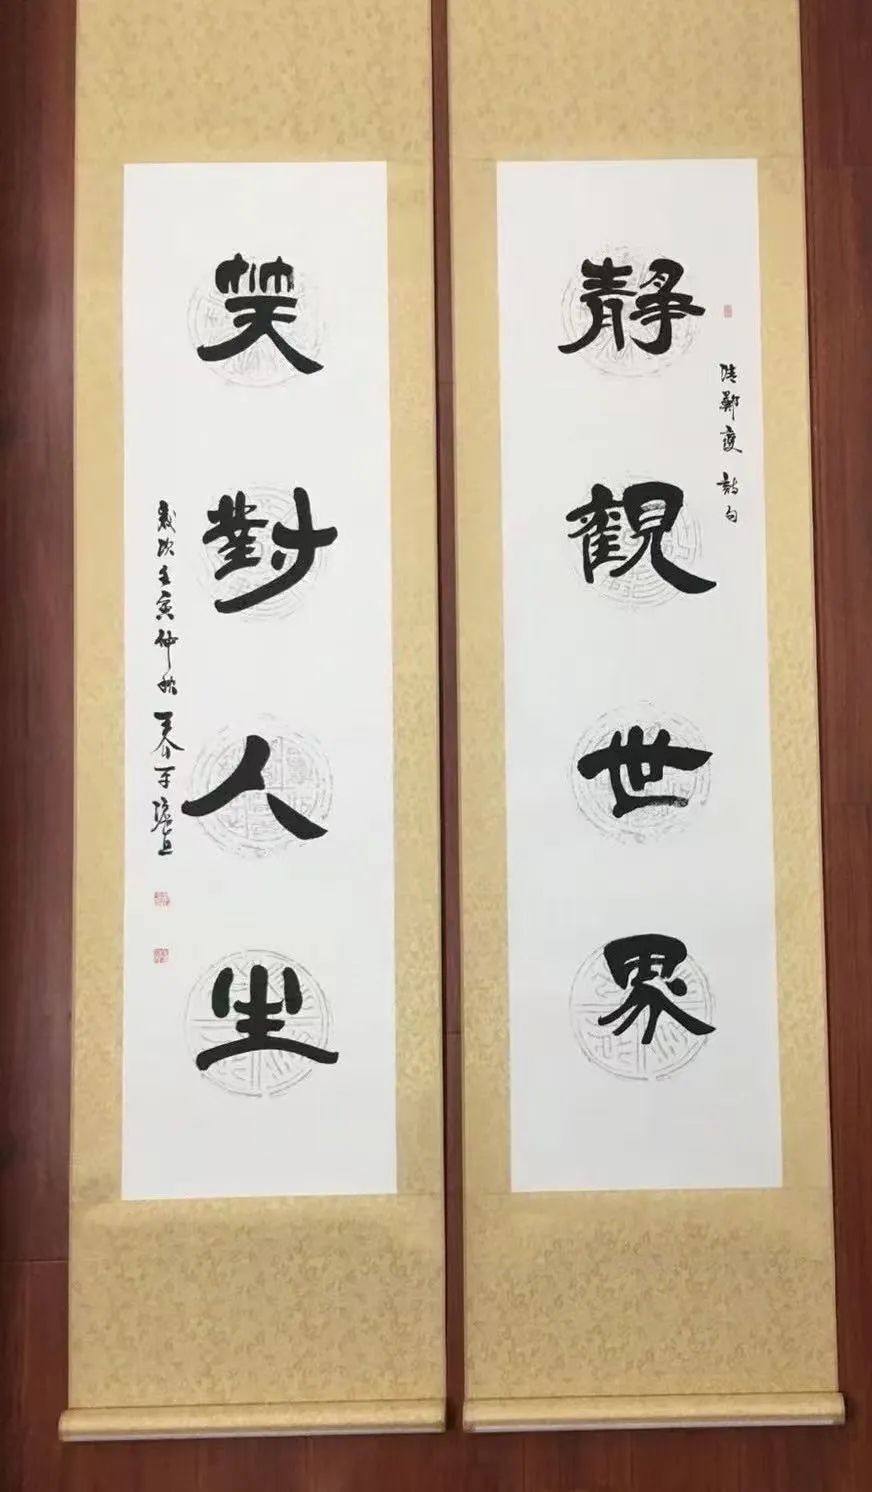 靜觀世界
詩句
笑對人生
歲次壬寅仲秋